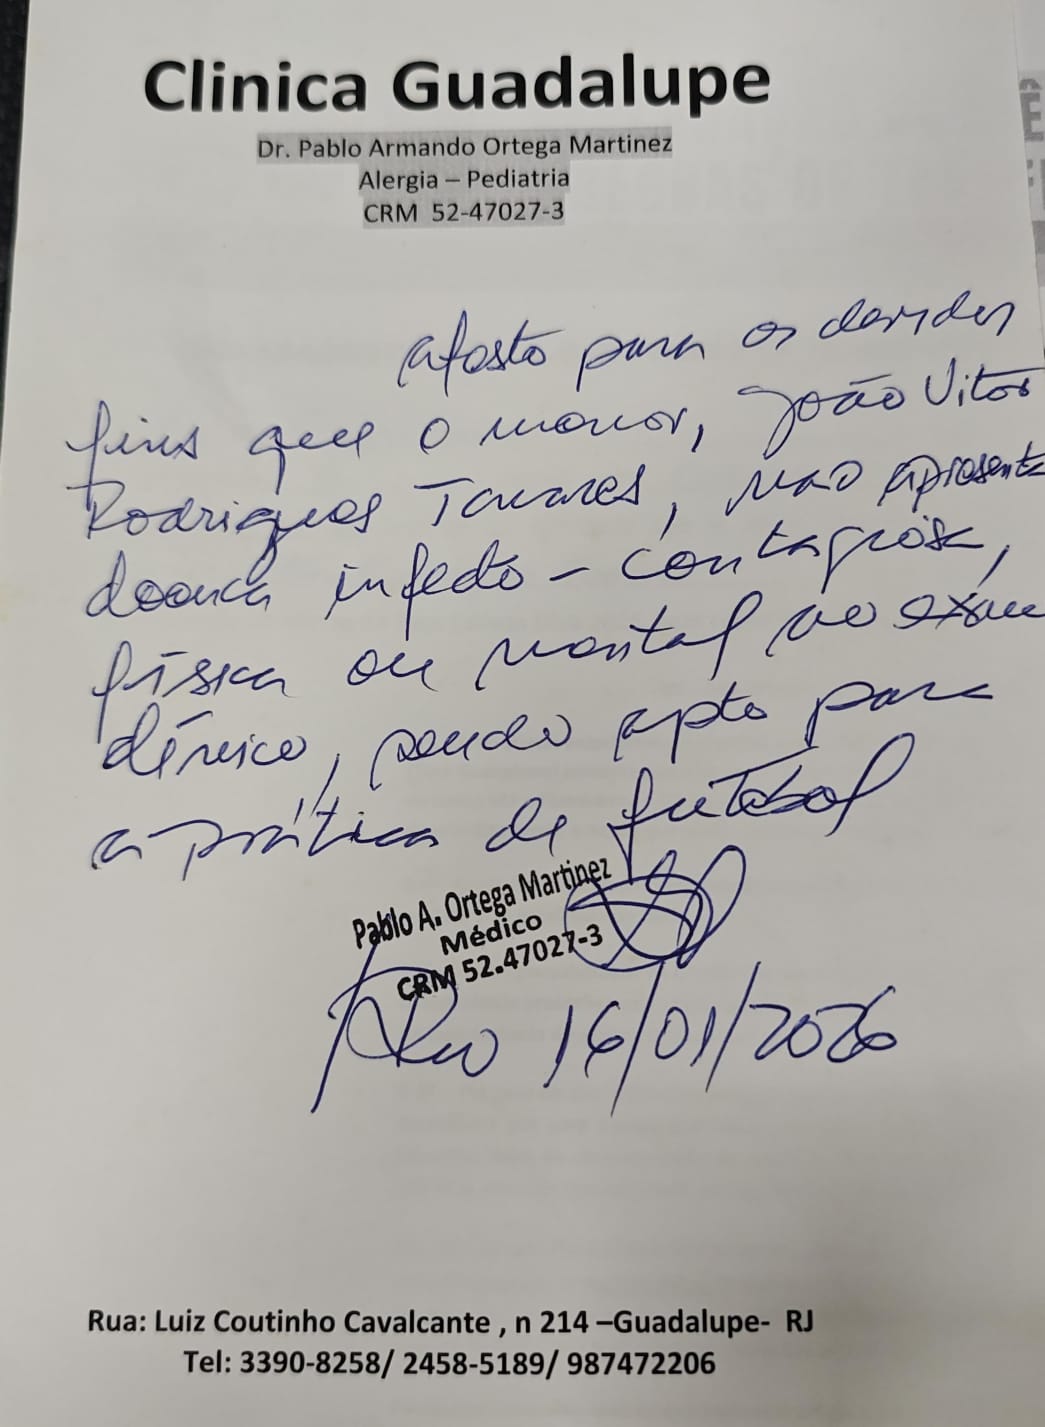 Clinica Guadalupe
Dr. Pablo Armando Ortega Martinez
Alergia – Pediatria
CRM 52-47027-3
Atesto para os devidos
fins que o menor, João Vitor
Rodrigues Tavares, não apresenta
doença infecto - contagiosa,
física ou mental ao exame
clínico, sendo apto para
a prática de futebol
Pablo A. Ortega Martinez
Médico
CRM 52.47027-3
Rio 16/01/2026
Rua: Luiz Coutinho Cavalcante , n 214 –Guadalupe- RJ
Tel: 3390-8258/ 2458-5189/ 987472206